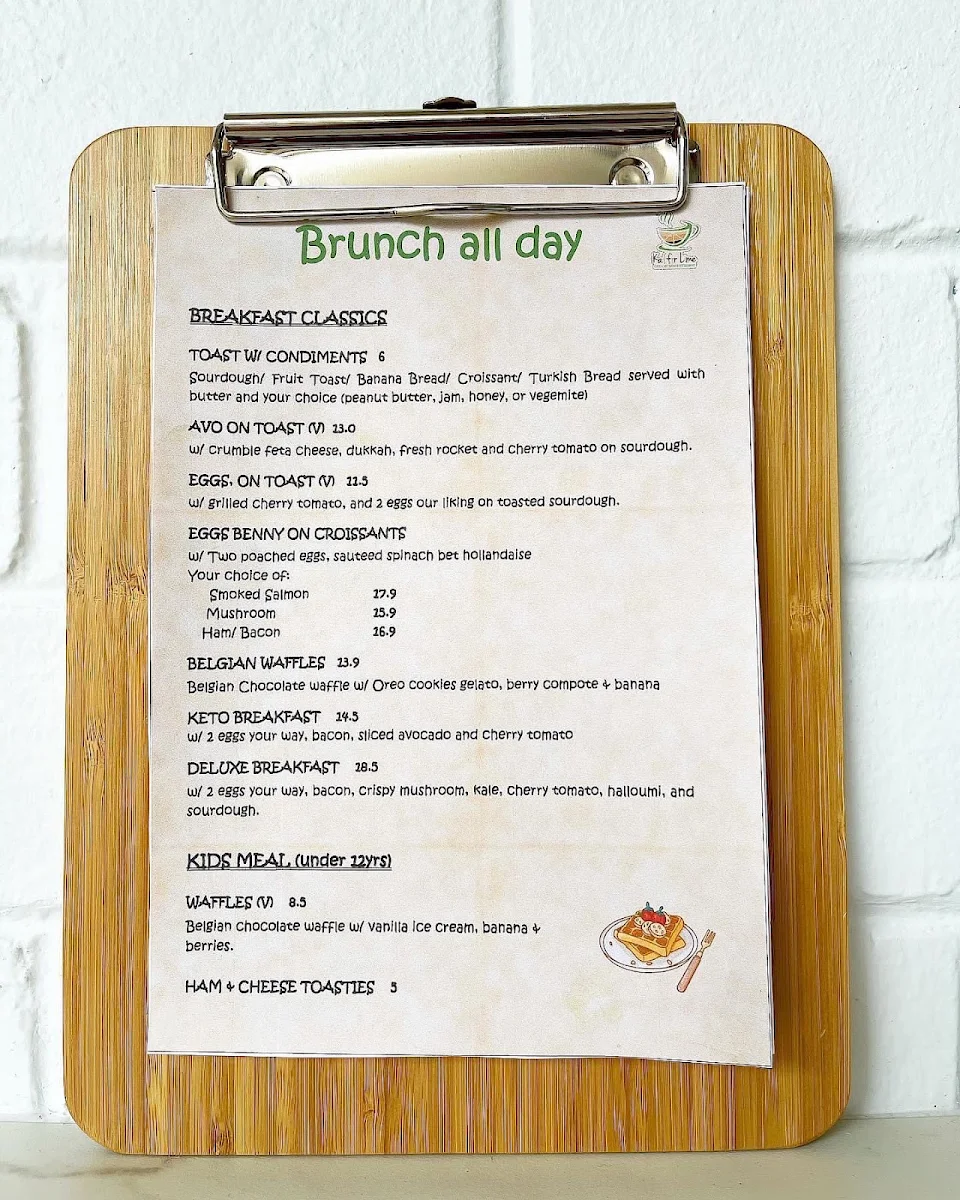 Brunch all day
BREAKFAST CLASSICS
TOAST W/ CONDIMENTS 6
Sourdough/ Fruit Toast/ Banana Bread/ Croissant/ Turkish Bread served with
butter and your choice (peanut butter, jam, honey, or vegemite)
AVO ON TOAST (V) 13.0
w/ crumble feta cheese, dukkah, fresh rocket and cherry tomato on sourdough.
EGGS. ON TOAST (V) 11.5
w/ grilled cherry tomato, and 2 eggs our liking on toasted sourdough.
EGGS BENNY ON CROISSANTS
w/ Two poached eggs, sauteed spinach bet hollandaise
Your choice of:
Smoked Salmon 17.9
Mushroom 15.9
Ham/ Bacon 16.9
BELGIAN WAFFLES 13.9
Belgian Chocolate waffle w/ Oreo cookies gelato, berry compote & banana
KETO BREAKFAST 14.5
w/ 2 eggs your way, bacon, sliced avocado and cherry tomato
DELUXE BREAKFAST 18.5
w/ 2 eggs your way, bacon, crispy mushroom, kale, cherry tomato, halloumi, and
sourdough.
KIDS MEAL (under 12yrs)
WAFFLES (V) 8.5
Belgian chocolate waffle w/ vanilla ice cream, banana &
berries.
HAM & CHEESE TOASTIES 5